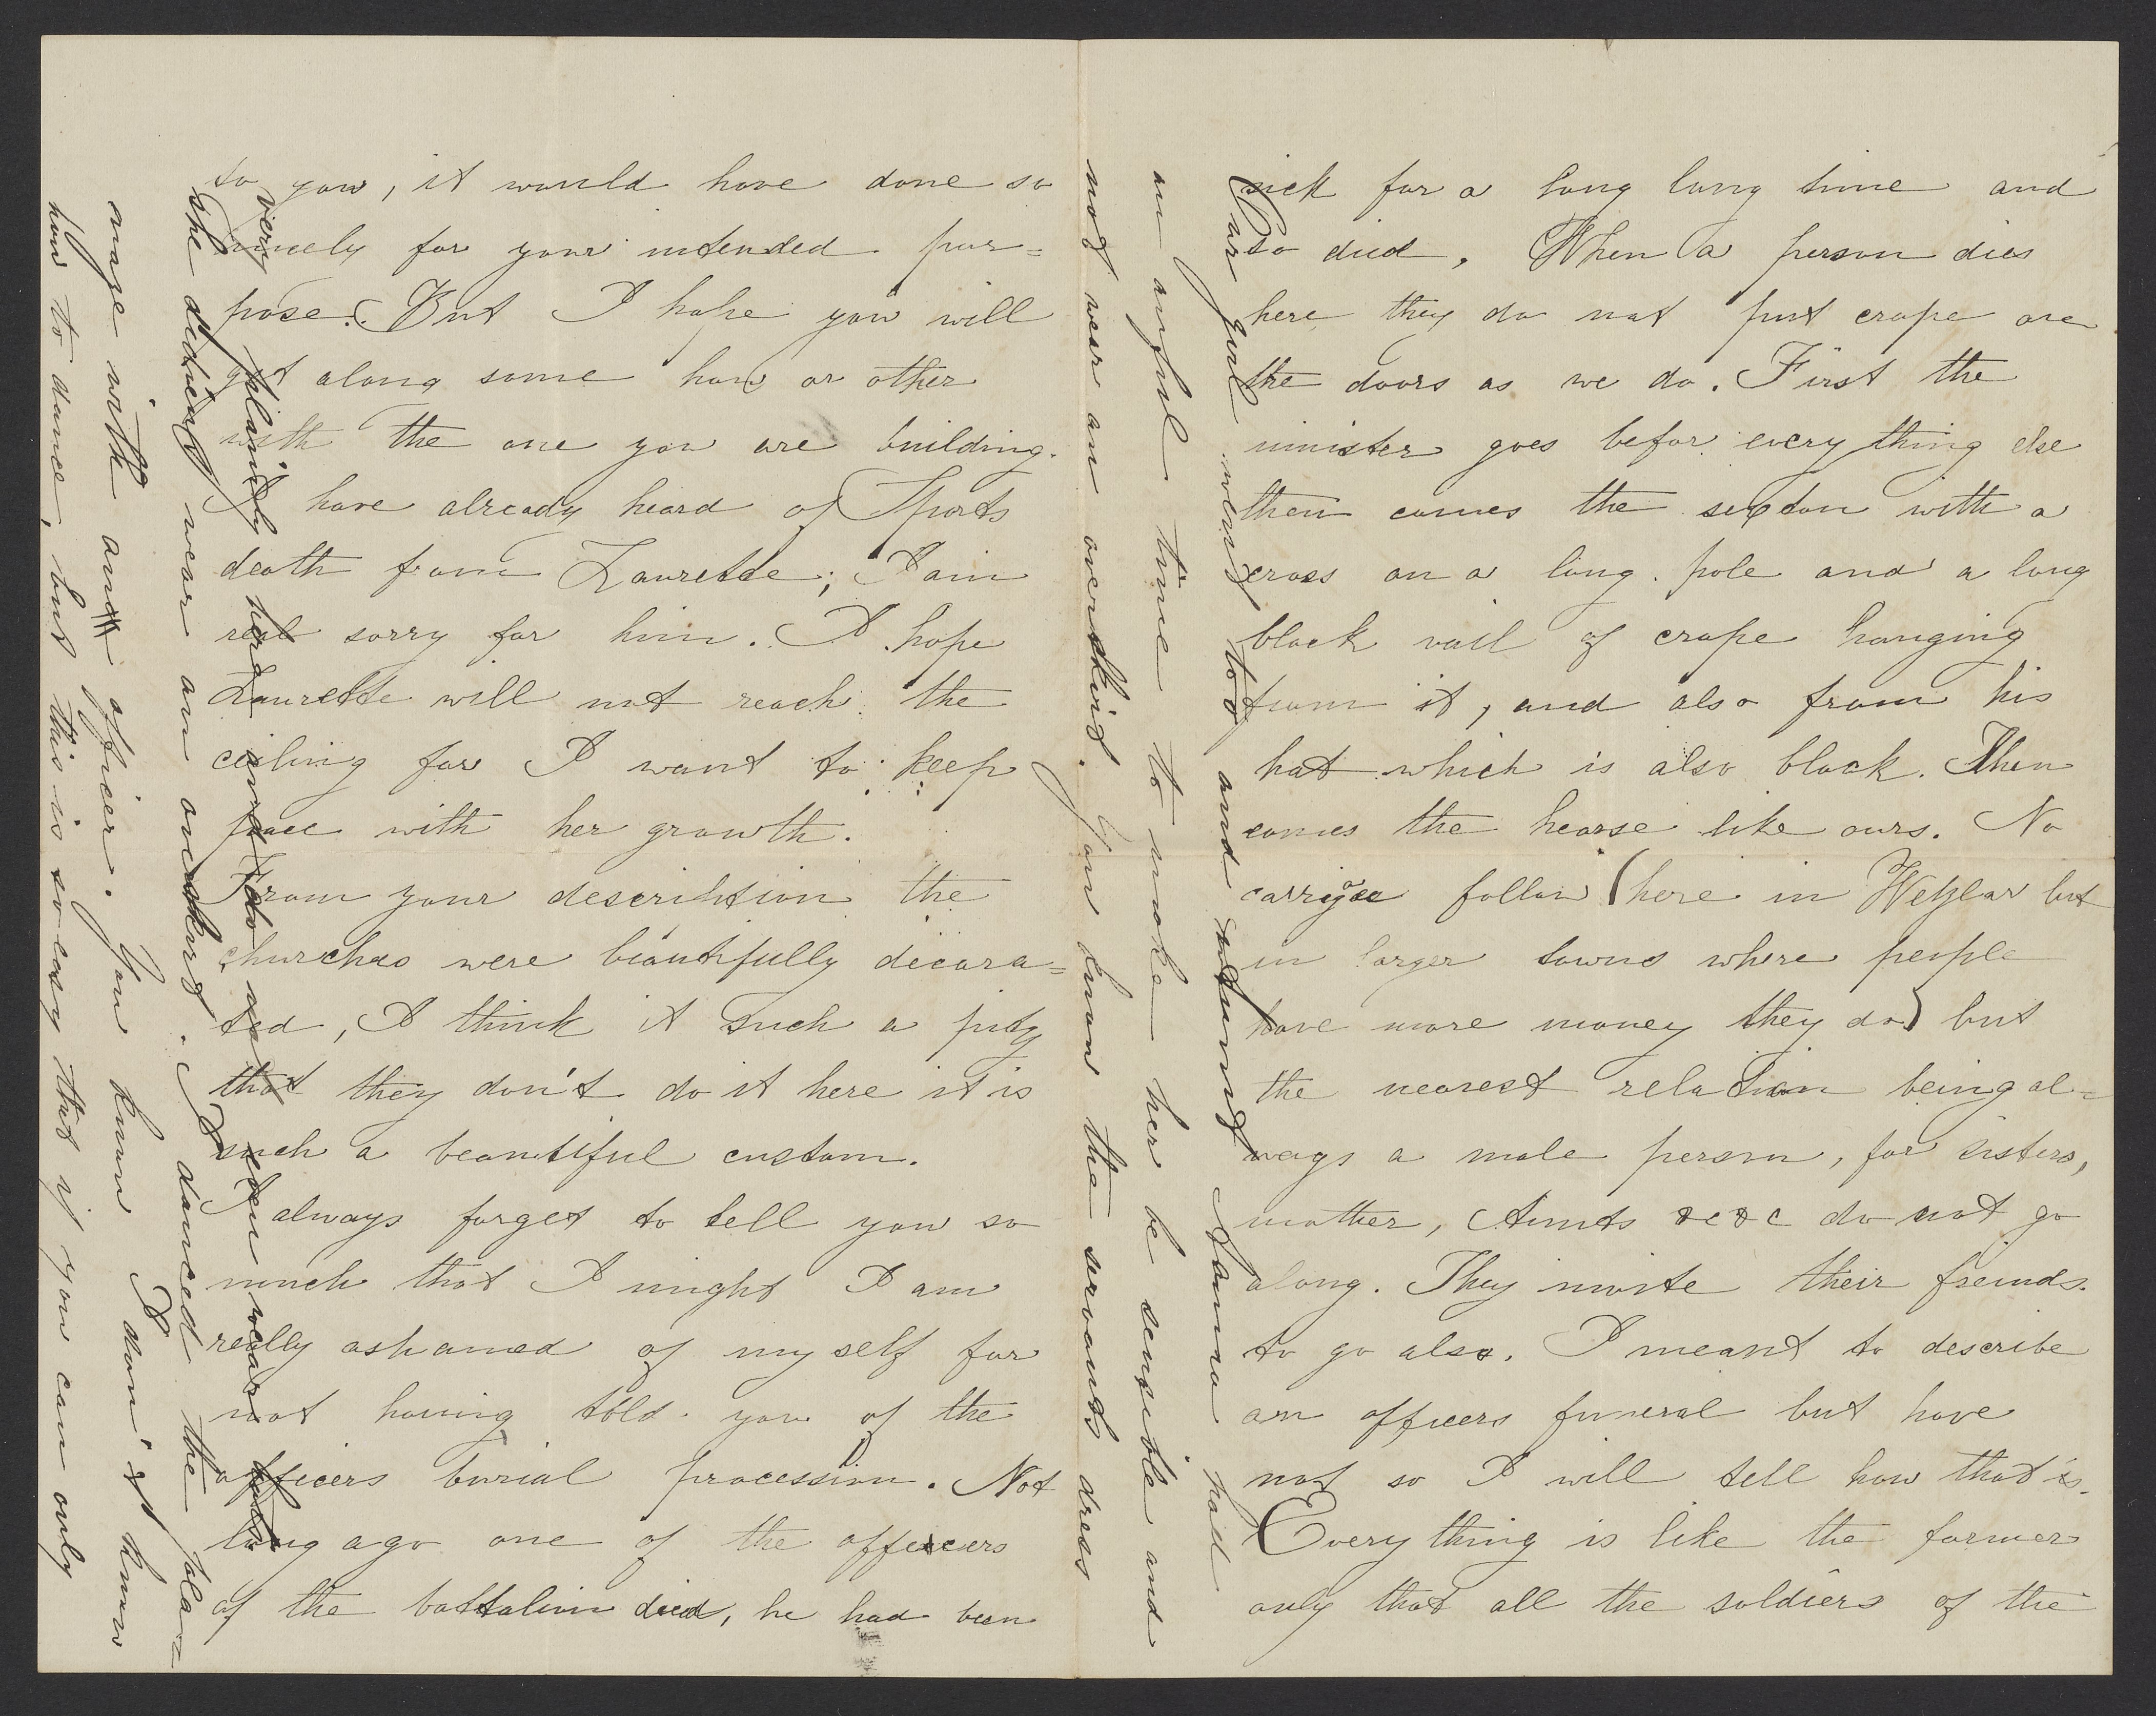 to you, it would have done so
nicely for your intended pur=
pose. But I hope you will
get along some how or other
with the one you are building.
I have already heard of Sports
death from Laurette; I am
real sorry for him. I hope
Laurette will not reach the
ceiling for I want to keep
pace with her growth.
From your description the
churches were beautifully decora=
ted, I think it such a pity
that they don't do it here it is
such a beautiful custom.
I always forget to tell you so
much that I might I am
really ashamed of my self for
not having told you of the
officers burial procession. Not
long ago one of the officers
of the battalion died, he had been
sick for a long long time and
so died. When a person dies
here they do not put crape on
the doors as we do. First the
minister goes befor every thing else
then comes the sexton with a
cross on a long pole and a long
black vail of crape hanging
from it, and also from his
hat which is also black. Then
comes the hearse like ours. No
carrigae follow (here in Wetzlar but
in larger towns where people
have more money they do) but
the nearest relation being al=
ways a male person, for sisters,
mother, Aunts &c &c do not go
along. They invite their freinds
to go also. I meant to describe
an officers funeral but have
not so I will tell how that is.
Every thing is like the former
only that all the soldiers of the
Our girl went too and Mamma had
an awful time to make her be sensible and
not wear an overskirt. You know the servants dress
very plainly here and do not even wear hats
She didn't wear an overskirt. I danced the pla=
nage with an officer. You know I don't know
how to dance, but this is so easy that if you can only